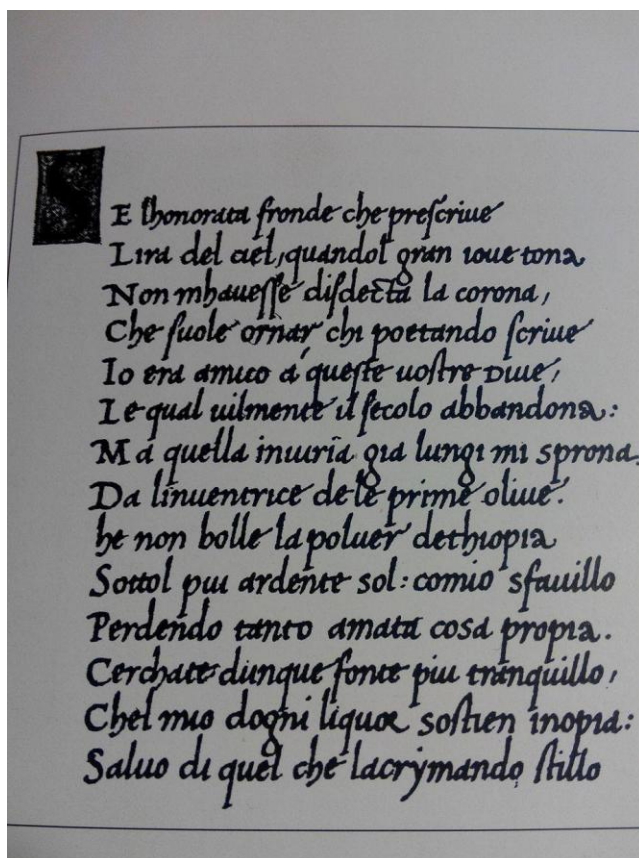 SE lhonorata fronde che preſcriue
Lira del ciel, quandol gran ioue tona
Non mhaueſſe diſdecta la corona,
Che ſuole ornar chi poetando ſcriue
Io era amico a queſte uoſtre Diue,
Le qual uilmente il ſecolo abbandona:
Ma quella iniuria gia lungi mi sprona.
Da linuentrice de le prime oliue.
he non bolle la poluer dethiopia
Sottol piu ardente sol: comio sfauillo
Perdendo tanto amata cosa propia.
Cerchate dunque fonte piu tranquillo,
Chel mio dogni liquor soſtien inopia:
Saluo di quel che lacrymando ſtillo